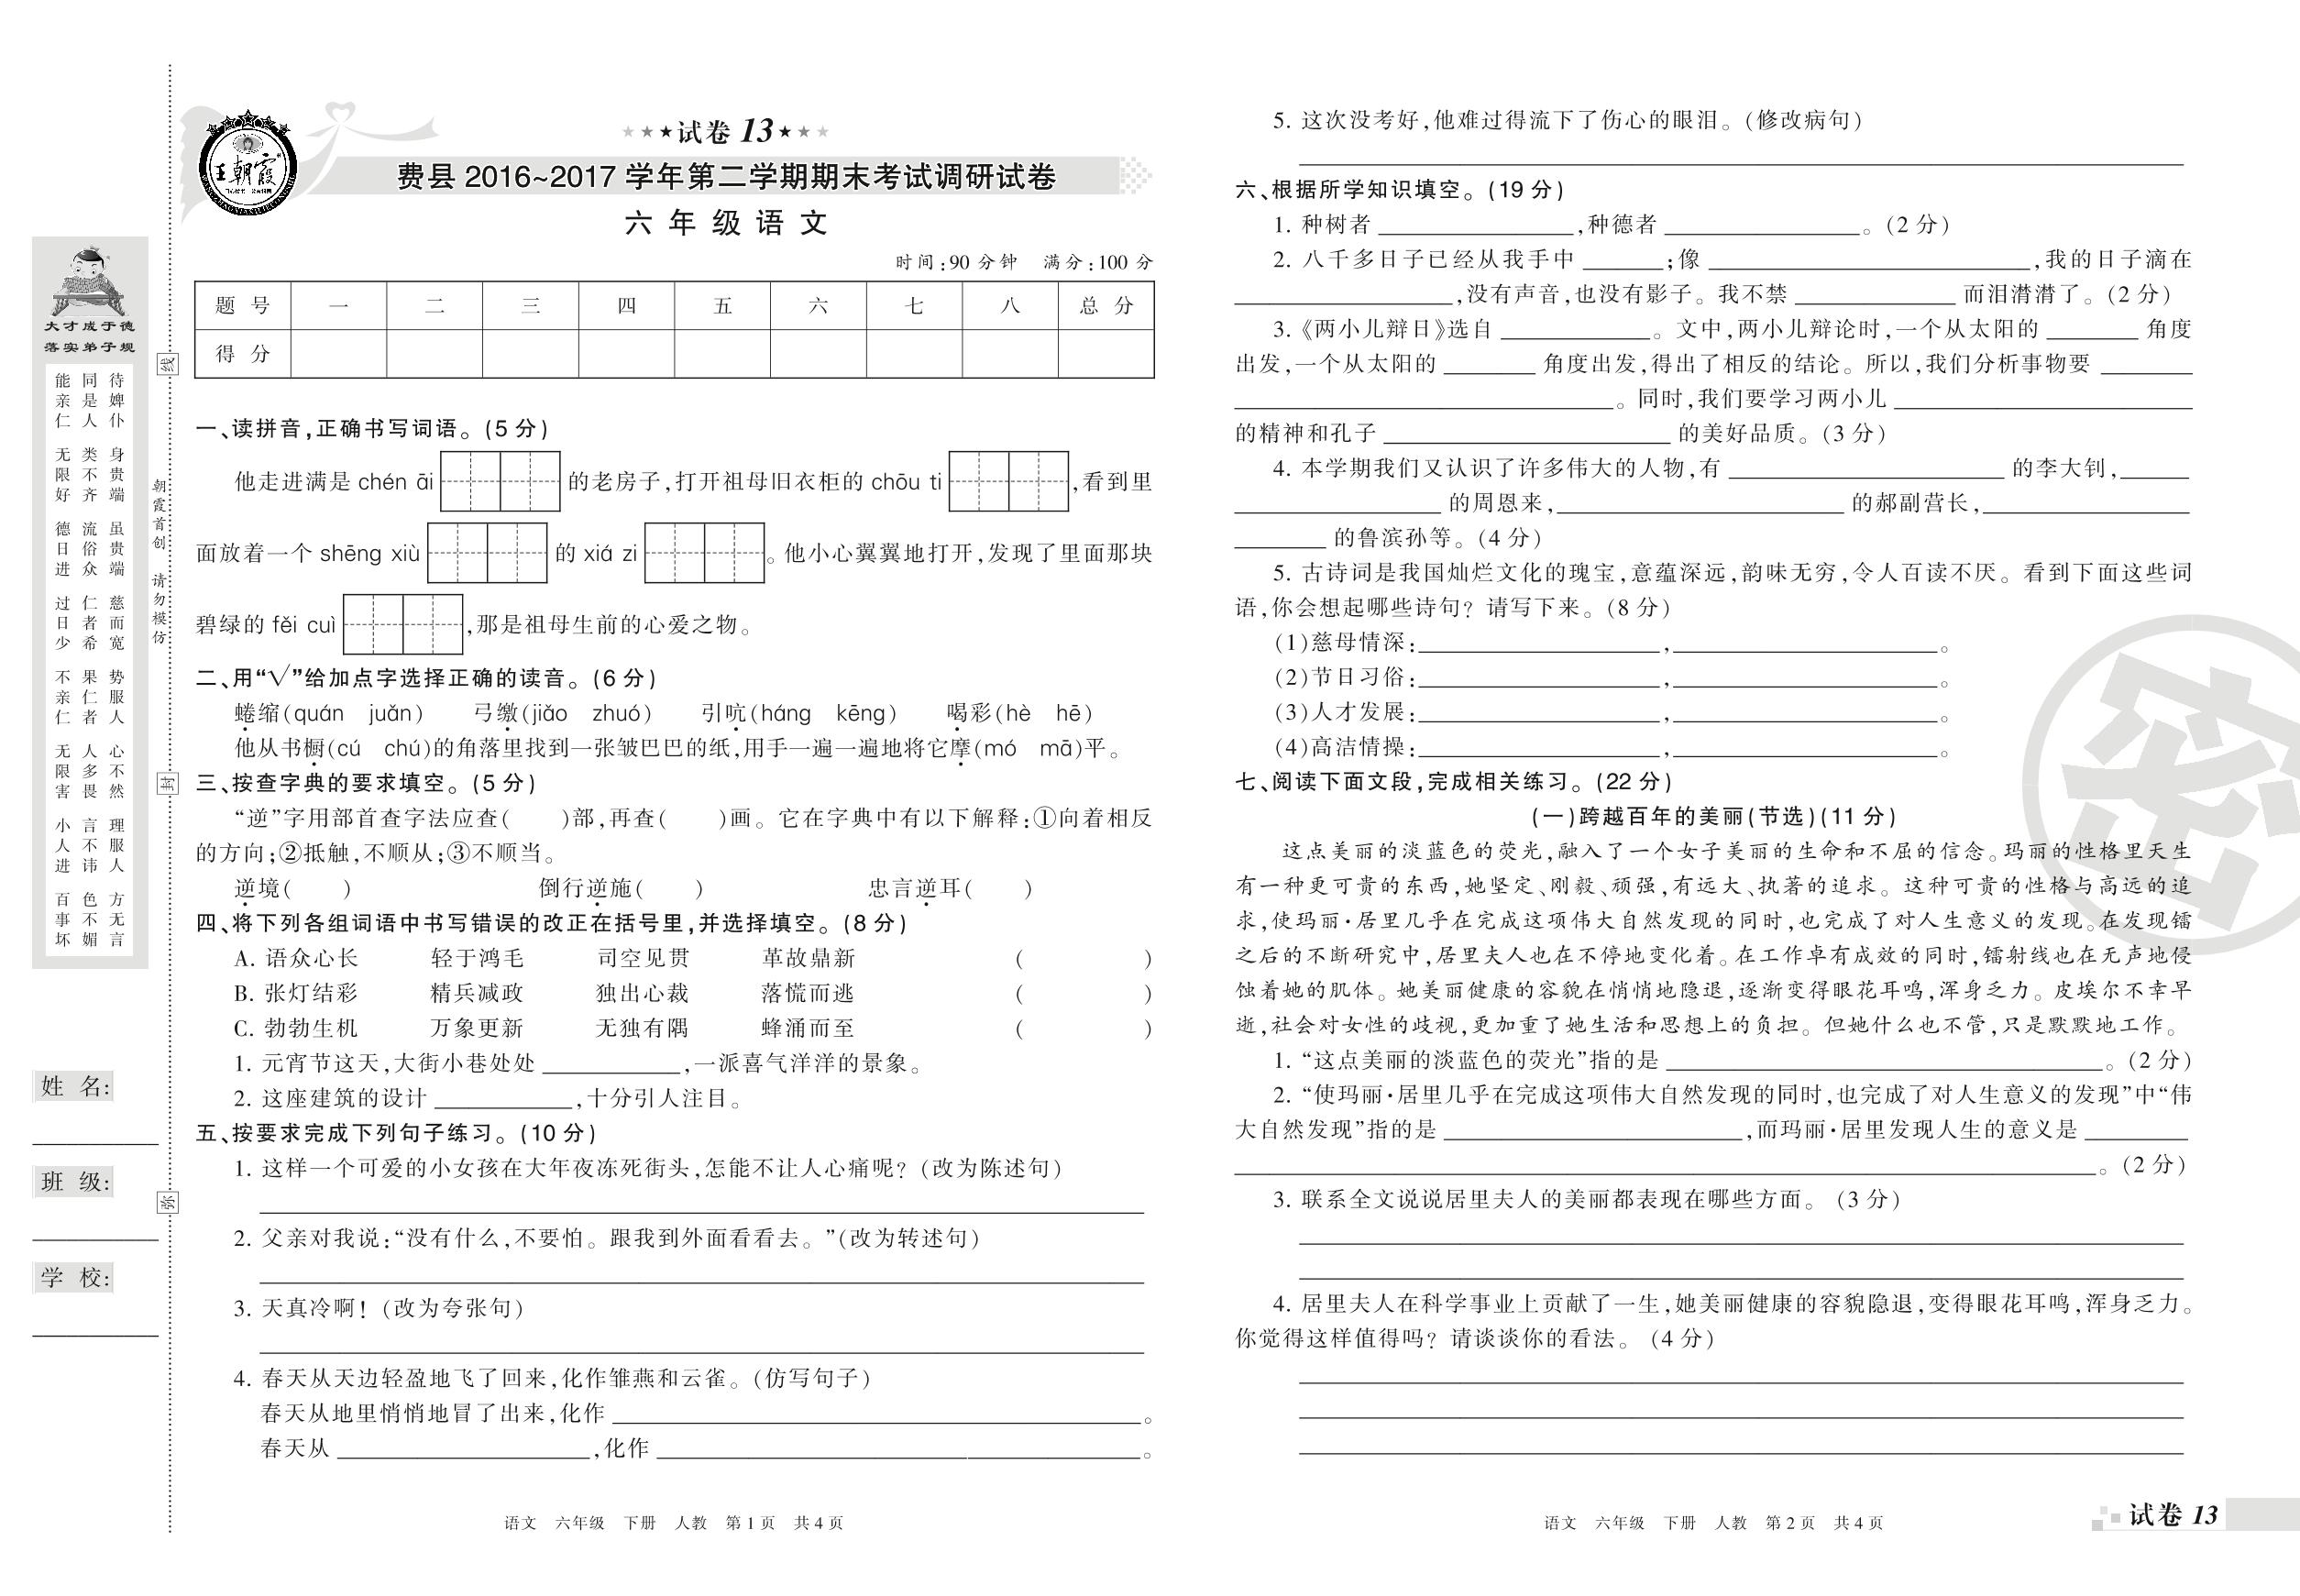 大才成于德
落实弟子规
能亲仁 无限好 德日进 过日少 不亲仁 无限害 小人进 百事坏
同是人 类不齐 流俗众 仁者希 果仁者 人多畏 言不讳 色不媚
待婢仆 身贵端 虽贵端 慈而宽 势服人 心不然 理服人 方无言
姓 名:
班 级:
学 校:
朝霞首创 请勿模仿
线
封
弥
王朝霞
★★★试卷 13★★★
费县 2016~2017 学年第二学期期末考试调研试卷
六 年 级 语 文
时间:90 分钟 满分:100 分
题 号 一 二 三 四 五 六 七 八 总 分
得 分
一、读拼音,正确书写词语。(5 分)
他走进满是 chén āi 的老房子,打开祖母旧衣柜的 chōu ti ,看到里
面放着一个 shēng xiù 的 xiá zi 。他小心翼翼地打开,发现了里面那块
碧绿的 fěi cuì ,那是祖母生前的心爱之物。
二、用“√”给加点字选择正确的读音。(6 分)
蜷缩(quán juǎn) 弓缴(jiǎo zhuó) 引吭(háng kēng) 喝彩(hè hē)
他从书橱(cú chú)的角落里找到一张皱巴巴的纸,用手一遍一遍地将它摩(mó mā)平。
三、按查字典的要求填空。(5 分)
“逆”字用部首查字法应查( )部,再查( )画。它在字典中有以下解释:①向着相反
的方向;②抵触,不顺从;③不顺当。
逆境( ) 倒行逆施( ) 忠言逆耳( )
四、将下列各组词语中书写错误的改正在括号里,并选择填空。(8 分)
A. 语众心长 轻于鸿毛 司空见贯 革故鼎新 ( )
B. 张灯结彩 精兵减政 独出心裁 落慌而逃 ( )
C. 勃勃生机 万象更新 无独有隅 蜂涌而至 ( )
1. 元宵节这天,大街小巷处处 ____________,一派喜气洋洋的景象。
2. 这座建筑的设计 ____________,十分引人注目。
五、按要求完成下列句子练习。(10 分)
1. 这样一个可爱的小女孩在大年夜冻死街头,怎能不让人心痛呢? (改为陈述句)
2. 父亲对我说:“没有什么,不要怕。跟我到外面看看去。”(改为转述句)
3. 天真冷啊! (改为夸张句)
4. 春天从天边轻盈地飞了回来,化作雏燕和云雀。(仿写句子)
春天从地里悄悄地冒了出来,化作 ____________。
春天从 ____________,化作 ____________。
语文 六年级 下册 人教 第 1 页 共 4 页
5. 这次没考好,他难过得流下了伤心的眼泪。(修改病句)
六、根据所学知识填空。(19 分)
1. 种树者 ____________,种德者 ____________。(2 分)
2. 八千多日子已经从我手中 ______;像 ____________,我的日子滴在
____________,没有声音,也没有影子。我不禁 ____________ 而泪潸潸了。(2 分)
3.《两小儿辩日》选自 ____________。文中,两小儿辩论时,一个从太阳的 ______ 角度
出发,一个从太阳的 ______ 角度出发,得出了相反的结论。所以,我们分析事物要 ______
____________。同时,我们要学习两小儿 ____________
的精神和孔子 ____________ 的美好品质。(3 分)
4. 本学期我们又认识了许多伟大的人物,有 ____________ 的李大钊,______
____________ 的周恩来,____________ 的郝副营长,____________
______ 的鲁滨孙等。(4 分)
5. 古诗词是我国灿烂文化的瑰宝,意蕴深远,韵味无穷,令人百读不厌。看到下面这些词
语,你会想起哪些诗句? 请写下来。(8 分)
(1)慈母情深:____________,____________。
(2)节日习俗:____________,____________。
(3)人才发展:____________,____________。
(4)高洁情操:____________,____________。
七、阅读下面文段,完成相关练习。(22 分)
(一)跨越百年的美丽(节选)(11 分)
这点美丽的淡蓝色的荧光,融入了一个女子美丽的生命和不屈的信念。玛丽的性格里天生
有一种更可贵的东西,她坚定、刚毅、顽强,有远大、执著的追求。这种可贵的性格与高远的追
求,使玛丽·居里几乎在完成这项伟大自然发现的同时,也完成了对人生意义的发现。在发现镭
之后的不断研究中,居里夫人也在不停地变化着。在工作卓有成效的同时,镭射线也在无声地侵
蚀着她的肌体。她美丽健康的容貌在悄悄地隐退,逐渐变得眼花耳鸣,浑身乏力。皮埃尔不幸早
逝,社会对女性的歧视,更加重了她生活和思想上的负担。但她什么也不管,只是默默地工作。
1. “这点美丽的淡蓝色的荧光”指的是 ____________。(2 分)
2. “使玛丽·居里几乎在完成这项伟大自然发现的同时,也完成了对人生意义的发现”中“伟
大自然发现”指的是 ____________,而玛丽·居里发现人生的意义是 ______
____________。(2 分)
3. 联系全文说说居里夫人的美丽都表现在哪些方面。(3 分)
4. 居里夫人在科学事业上贡献了一生,她美丽健康的容貌隐退,变得眼花耳鸣,浑身乏力。
你觉得这样值得吗? 请谈谈你的看法。(4 分)
语文 六年级 下册 人教 第 2 页 共 4 页
试卷 13
密